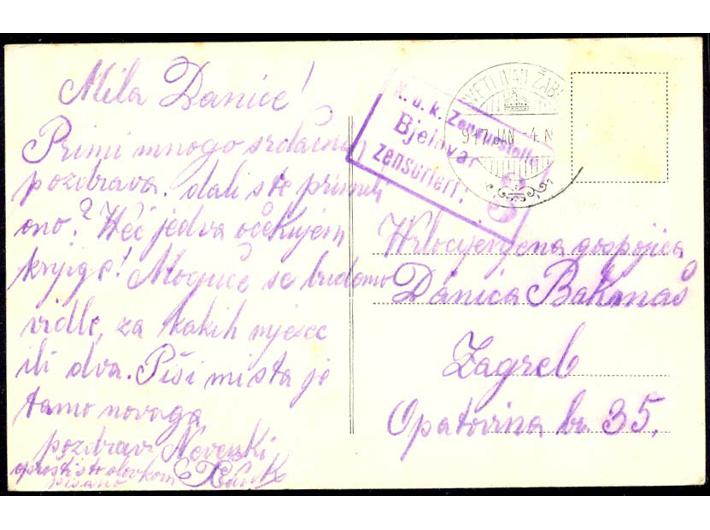 Mila Danice!
Primi mnogo srdačnih
pozdrava. dali ste primili
ono? Več jedva očekujem
knjige! Moguče se budemo
vidle, za kakih mjesec
ili dva. Piši mi šta je
tamo novoga
pozdrav
oprosti što olovkom
pisano
K. u. k. Zensurstelle
Bjelovar
zensuriert.
SVETI IVAN ŽAB
917 JAN -4. N
Vrlocijenjena gospojica
Danica
Zagreb
Opatovina br. 35.